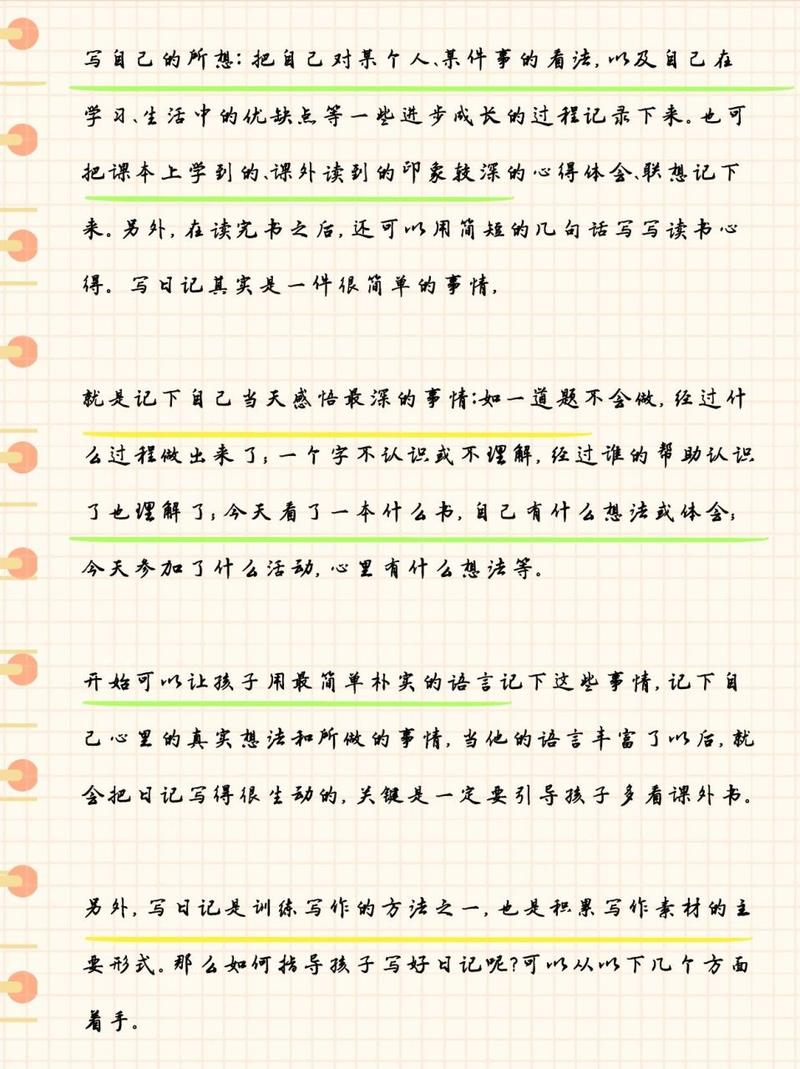 写自己的所想：把自己对某个人、某件事的看法，以及自己在
学习、生活中的优缺点等一些进步成长的过程记录下来。也可
把课本上学到的、课外读到的印象较深的心得体会、联想记下
来。另外，在读完书之后，还可以用简短的几句话写写读书心
得。写日记其实是一件很简单的事情，
就是记下自己当天感悟最深的事情：如一道题不会做，经过什
么过程做出来了；一个字不认识或不理解，经过谁的帮助认识
了也理解了；今天看了一本什么书，自己有什么想法或体会；
今天参加了什么活动，心里有什么想法等。
开始可以让孩子用最简单朴实的语言记下这些事情，记下自
己心里的真实想法和所做的事情，当他的语言丰富了以后，就
会把日记写得很生动的，关键是一定要引导孩子多看课外书。
另外，写日记是训练写作的方法之一，也是积累写作素材的主
要形式。那么如何指导孩子写好日记呢？可以从以下几个方面
着手。